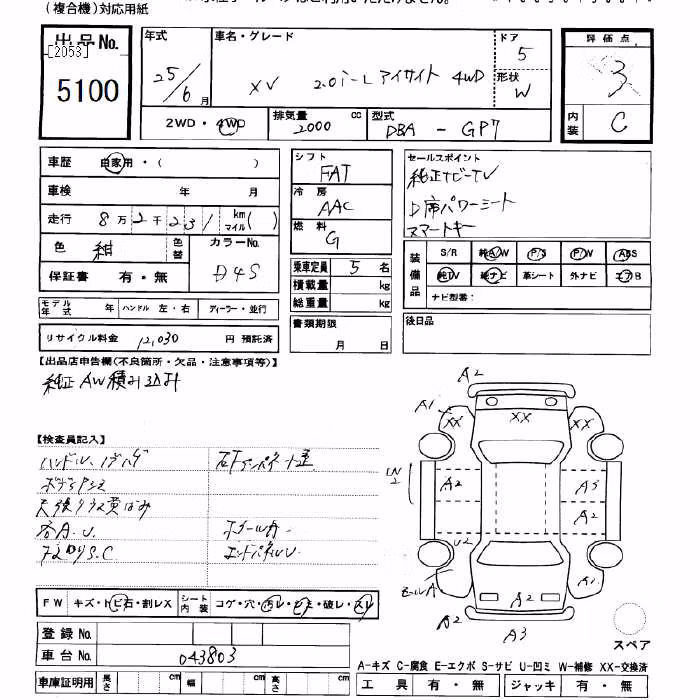 (複合機)対応用紙
出品No.
[2053]
5100
年式
25/6月
車名・グレード
XV 2.0i-L アイサイト 4WD
ドア
5
形状
W
評価点
3
内装
C
2WD・4WD
排気量
2000 cc
型式
DBA - GP7
車歴 自家用・( )
車検 年 月
走行 8万2千231 km マイル( )
色 紺 色替
カラーNo.
D4S
保証書 有・無
モデル年式 年 ハンドル 左・右 ディーラー・並行
リサイクル料金 12,030 円 預託済
シフト
FAT
冷房
AAC
燃料
G
乗車定員 5 名
積載量 kg
総重量 kg
書類期限
月 日
セールスポイント
純正ナビ-TV
D席パワーシート
スマートキー
装備品
S/R 純A/W P/S P/W ABS
純TV 純ナビ 革シート 外ナビ エアB
ナビ型番:
後日品
【出品店申告欄(不良箇所・欠品・注意事項等)】
純正AW積み込み
【検査員記入】
ハンドル
各A.U.
S.C
エンドパネルU
FW キズ・トビ石・割レX
シート内装 コゲ・穴・汚レ・シミ・破レ・スレ
登録No.
車台No. 043803
車庫証明用 長さ cm 幅 cm 高さ cm
A2
A1
XX
XX
XX
W2
A2
A3
A2
U2
A2
A2
A1
A2
A2
A3
スペア
A-キズ C-腐食 E-エクボ S-サビ U-凹ミ W-補修 XX-交換済
工具 有・無 ジャッキ 有・無